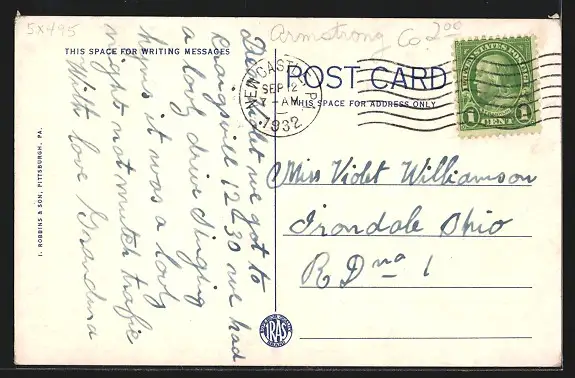 5x495
Armstrong Co 200
THIS SPACE FOR WRITING MESSAGES
POST CARD
THIS SPACE FOR ADDRESS ONLY
NEW CASTLE, P
SEP 2
7-AM
1932
UNITED STATES POSTAGE
1 CENT 1
Dear Violet we got to
Kraigsvill 12-30 we had
a lovly drive Singing
hyms it was a lovly
night not mutch trafic
With love Grandma
Miss Violet Williamson
Irondale Ohio
R D no 1
I. ROBBINS & SON, PITTSBURGH, PA.
IRAS